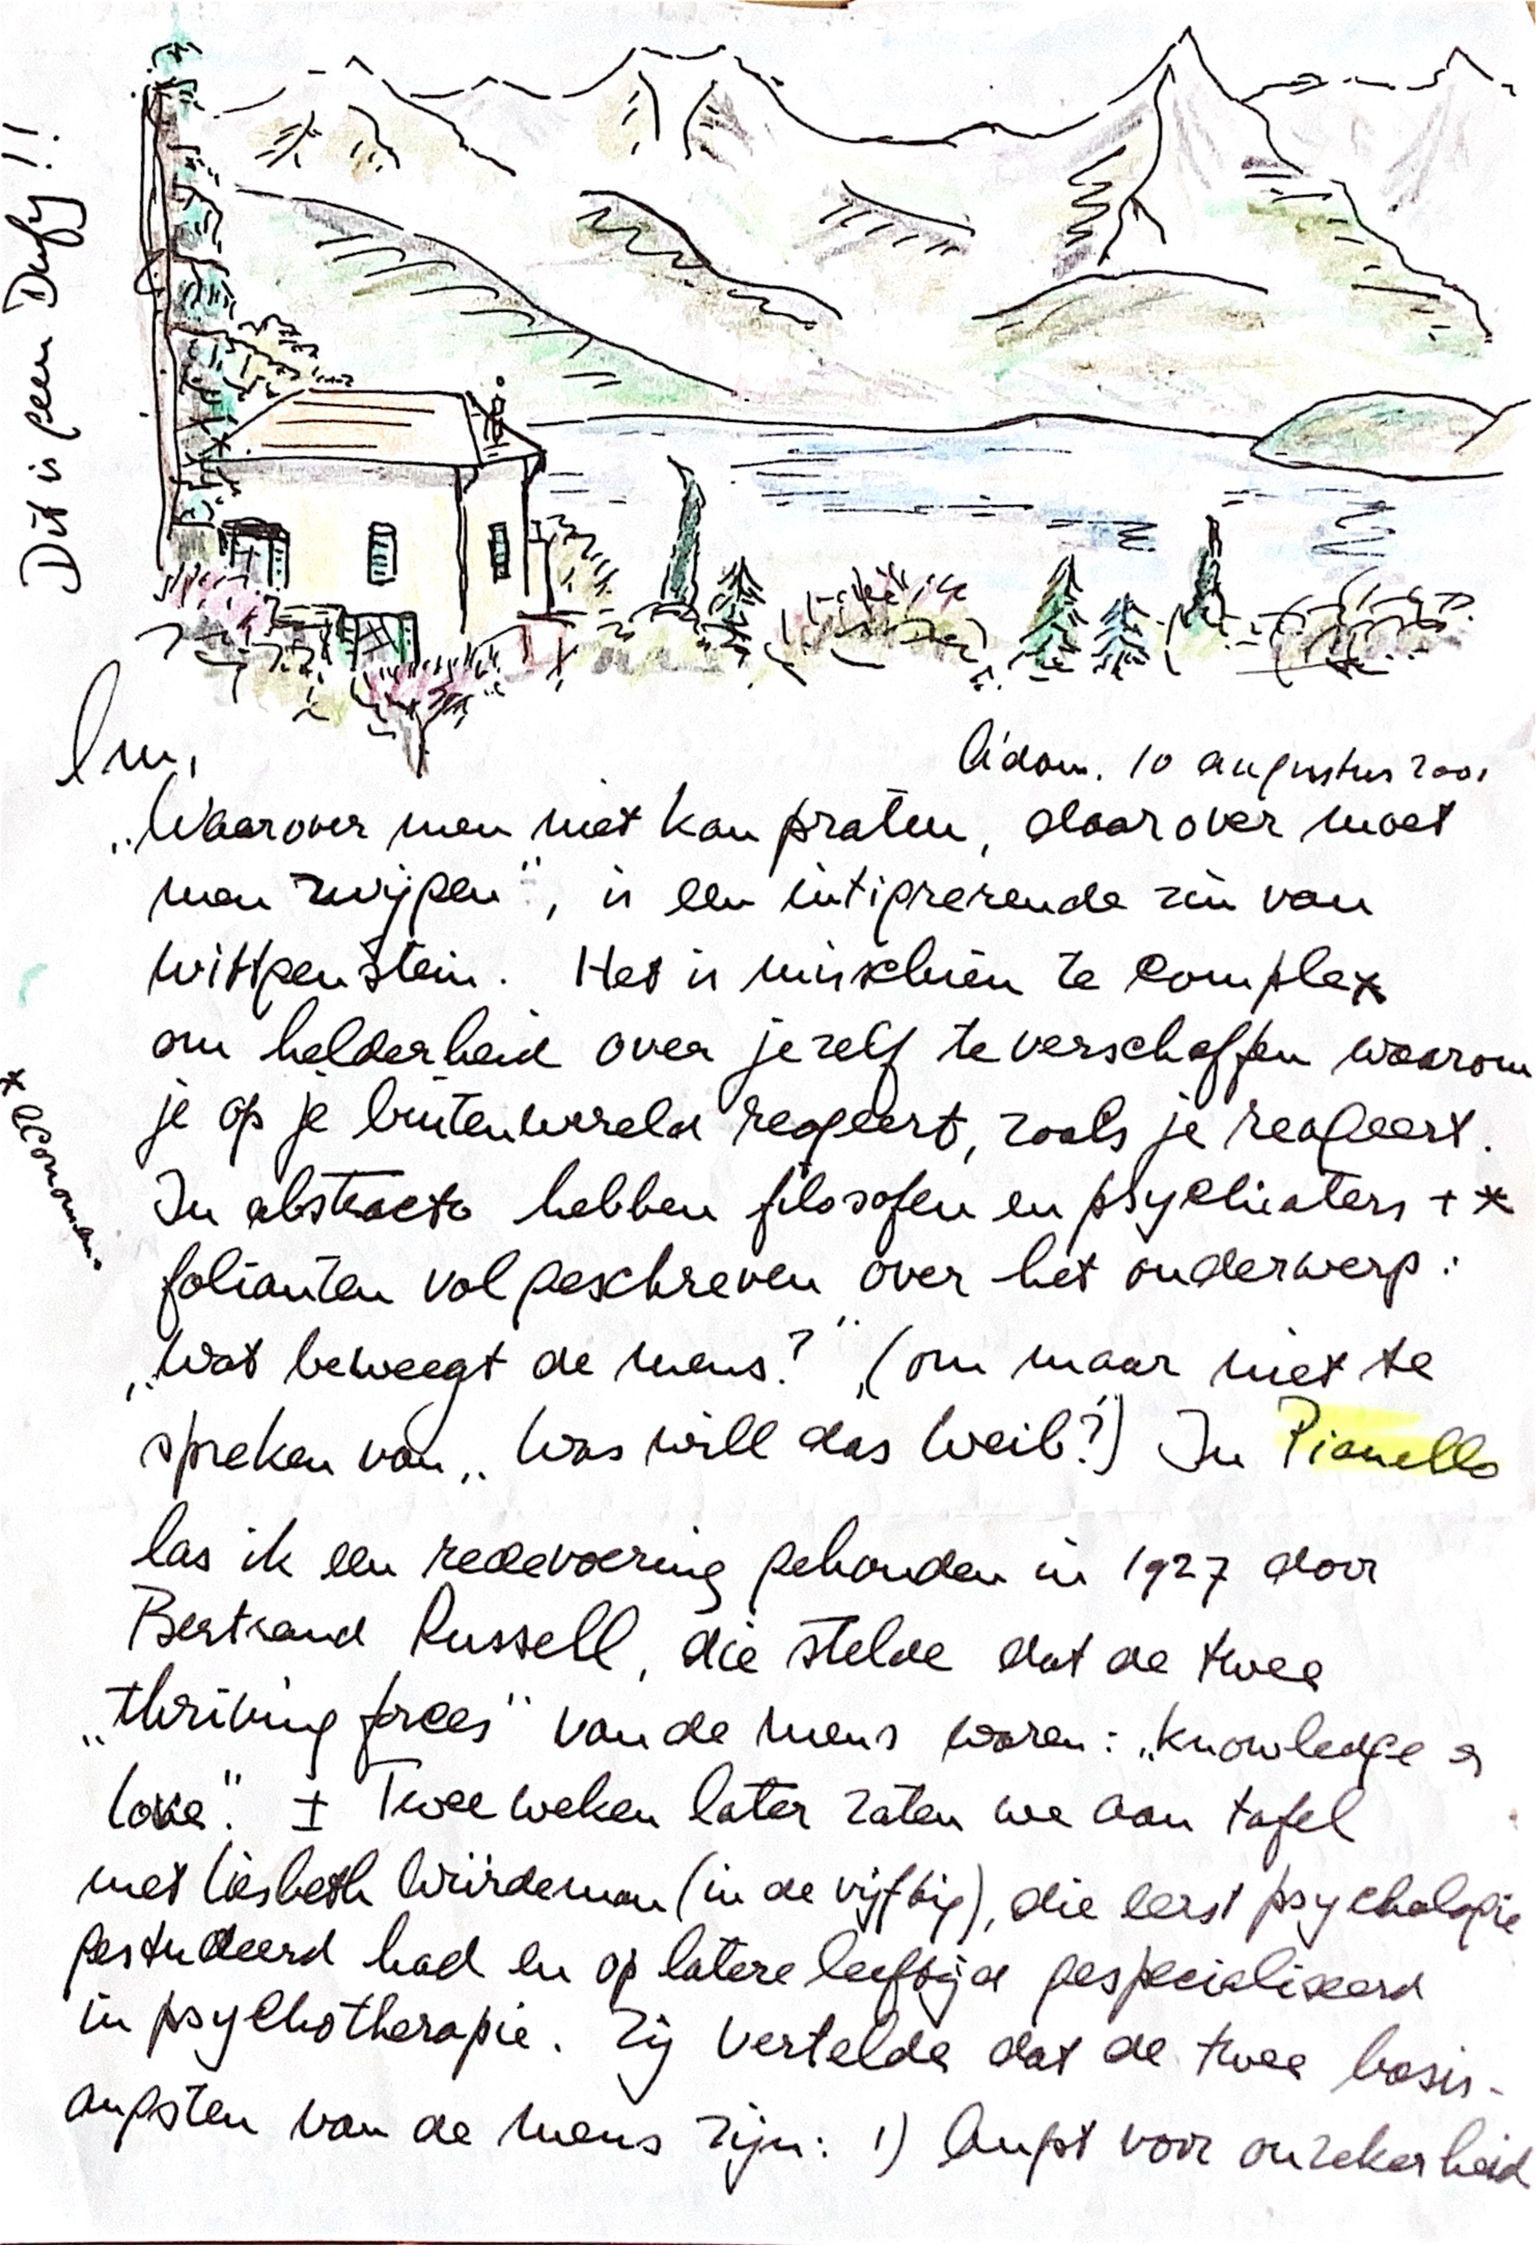 Dit is geen Dufy!!
Im,
A'dam. 10 augustus 2001
„Waarover men niet kan praten, daarover moet
men zwijgen", is een intigrerende zin van
Wittgenstein. Het is misschien te complex
om helderheid over jezelf te verschaffen waarom
je op je buitenwereld reageert, zoals je reageert.
In abstracto hebben filosofen en psychiaters + *
folianten vol geschreven over het onderwerp:
„Wat beweegt de mens?" (om maar niet te
spreken van „Was will das Weib?") In Pianello
las ik een redevoering gehouden in 1927 door
Bertrand Russell, die stelde dat de twee
„thriving forces" van de mens waren: „knowledge &
love". ± Twee weken later zaten we aan tafel
met Liesbeth Würdeman (in de vijftig), die eerst psychologie
gestudeerd had en op latere leeftijd gespecialiseerd
in psychotherapie. Zij vertelde dat de twee basis-
angsten van de mens zijn: 1) Angst voor onzekerheid
* economen.